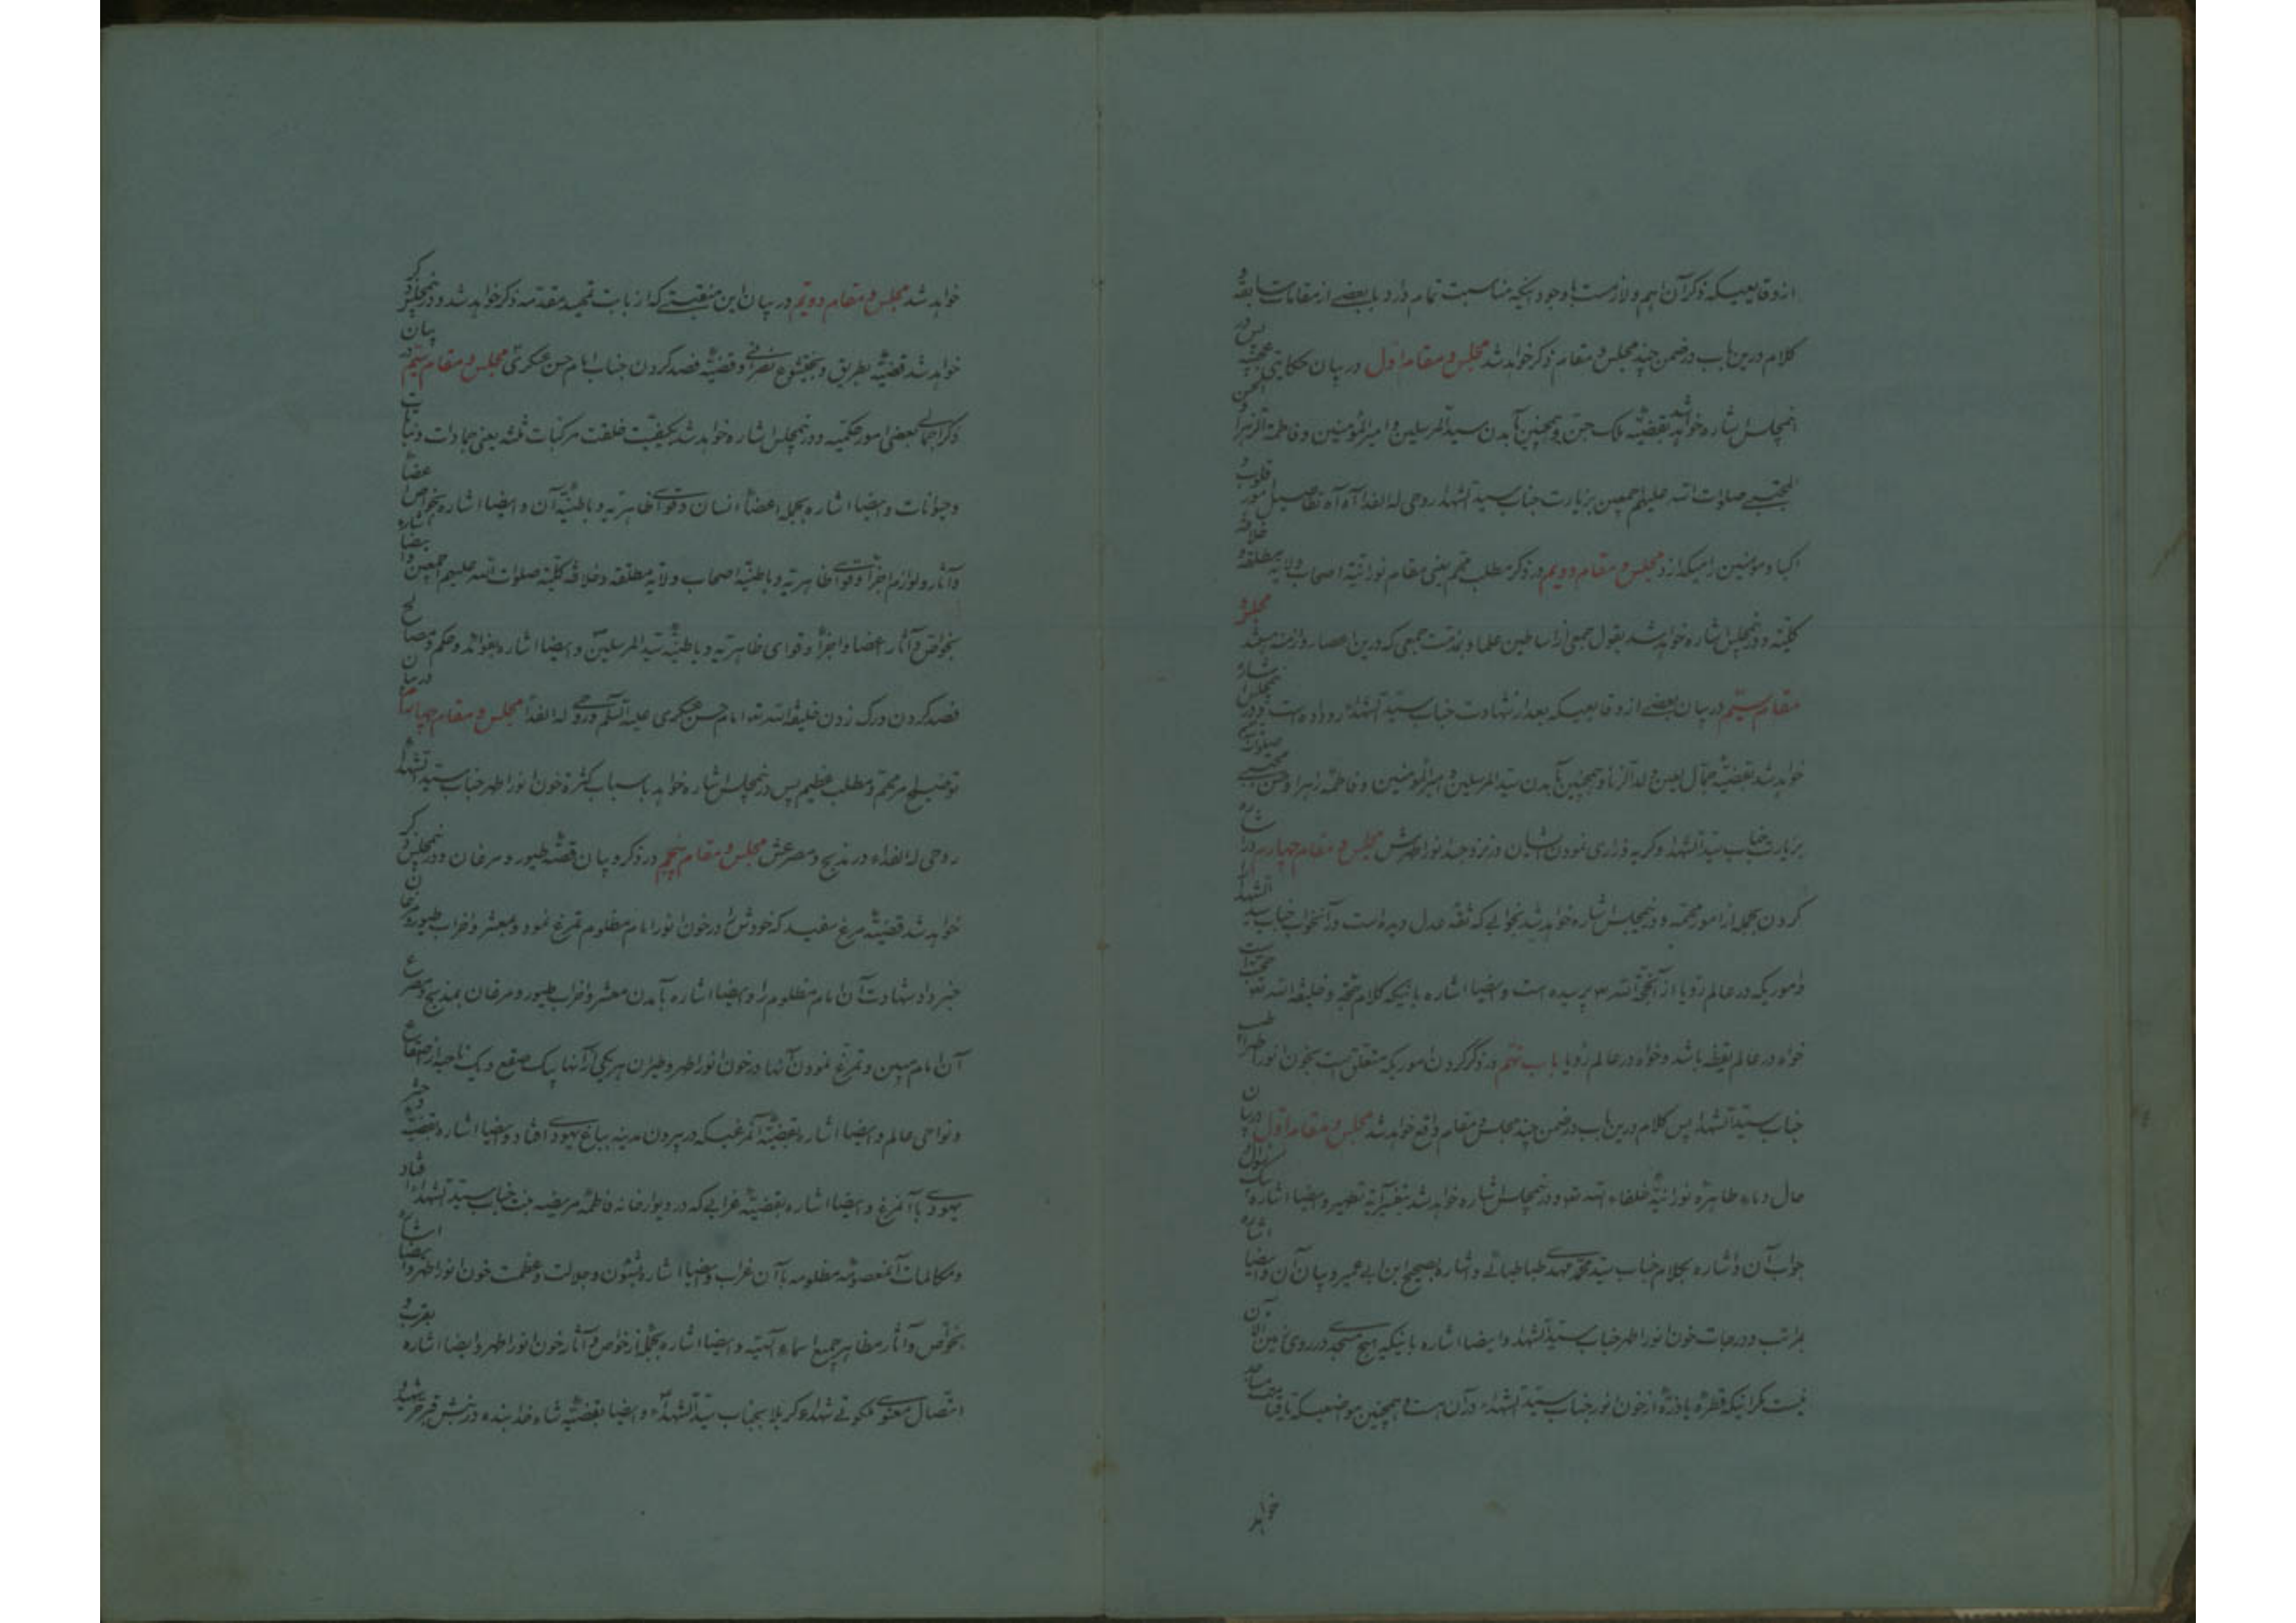 از وقایعیکه ذکر آن اهم و لازمست با وجود اینکه مناسبت تمام دارد با بعضی از مقامات سابقه و
کلام درین باب در ضمن چند مجلس و مقام ذکر خواهد شد مجلس و مقام اول در بیان حکایتی عجیب پس در
اینمجلس اشاره خواهد شد بقضیه ملک جن و همچنین آمدن سید المرسلین و امیر المؤمنین و فاطمة الزهرا و الحسن
المجتبی صلوات الله علیهم اجمعین بزیارت جناب سید الشهدا روحی له الفداء آه آه تفاصیل امور قلوب و
اکباد مومنین را میگدازد مجلس و مقام دویم در ذکر مطلب مهم یعنی مقام نورانیة اصحاب ولایه مطلقه و خلافة
کلیه و در اینمجلس اشاره خواهد شد بقول جمعی از اساطین علما و بمذمت جمعی که درین اعصار و ازمنه مجلس و
مقام سیم در بیان بعضی از وقایعیکه بعد از شهادت جناب سید الشهداء رو داده است و در اینمجلس اشاره
خواهد شد بقضیه جمال لعین ولد الزنا و همچنین آمدن سید المرسلین و امیر المؤمنین و فاطمه زهرا و حسن مجتبی صلوات
بزیارت جناب سید الشهدا و گریه و زاری نمودن ایشان در نزد جسد انور اطهرش مجلس و مقام چهارم در اشاره
کردن بجمله از امور مهمه و در اینمجلس اشاره خواهد شد بخوابی که ثقه عدل دیده است و آنخواب جناب سید الشهدا
و اموریکه در عالم رؤیا از آنحجة الله پرسیده است و ایضا اشاره باینکه کلام حجة و خلیفة الله تع حجت است
خواه در عالم یقظه باشد و خواه در عالم رؤیا باب نهم در ذکر کردن اموریکه متعلق است بخون انور اطهر
جناب سید الشهدا پس کلام درین باب در ضمن چند مجلس و مقام واقع خواهد شد مجلس و مقام اول در بیان
حال دماء طاهره نورانیة خلفاء الله تع و در اینمجلس اشاره خواهد شد بتفسیر آیه تطهیر و ایضا اشاره
جواب آن و اشاره بکلام جناب سید محمد مهدی طباطبائی و اشاره بصحیح ابن ابی عمیر و بیان آن و ایضا اشاره
بمراتب و درجات خون انور اطهر جناب سید الشهداء و ایضا اشاره باینکه هیچ مسجد در روی زمین الآن
نیست مگر اینکه قطره یا ذره از خون انور جناب سید الشهداء در آن هست و همچنین مواضعیکه
خواهد
خواهد شد مجلس و مقام دویم در بیان این منقبتی که از بابت تمهید مقدمه ذکر خواهد شد و در اینمجلس ذکر
خواهد شد قضیه بطریق و بختیشوع نصرانی و قضیه فصد کردن جناب امام حسن عسکری مجلس و مقام سیم در بیان
ذکر اجمالی بعضی امور حکمیه و در اینمجلس اشاره خواهد شد بکیفیت خلقت مرکبات ثلثه یعنی جمادات و نباتات
و حیوانات و ایضا اشاره بجمله اعضاء انسان و قوای ظاهریه و باطنیه آن و ایضا اشاره بخواص اعضاء
و آثار و لوازم اجزا و قوای ظاهریه و باطنیه اصحاب ولایه مطلقه و خلافة کلیه صلوات الله علیهم اجمعین و ایضا اشاره
بخواص و آثار اعضا و اجزا و قوای ظاهریه و باطنیه سید المرسلین و ایضا اشاره بفوائد و حکم و مصالح
فصد کردن و رگ زدن خلیفة الله تع امام حسن عسکری علیه السلام و روحی له الفداء مجلس و مقام چهارم در بیان
توضیح امر مهم و مطلب عظیم پس در اینمجلس اشاره خواهد باسباب کثرة خون انور اطهر جناب سید الشهداء
روحی له الفداء در مذبح و مصرعش مجلس و مقام پنجم در ذکر و بیان قصه طیور و مرغان و در اینمجلس ذکر
خواهد شد قضیه مرغ سفید که خودش را در خون انور امام مظلوم تمرغ نمود و بمعشر و احزاب طیور و مرغان
خبر داد شهادت آن امام مظلوم را و ایضا اشاره بآمدن معشر و احزاب طیور و مرغان بمذبح و مصرع
آن امام مبین و تمرغ نمودن آنها در خون انور اطهر و طیران هر یکی از آنها بیک صقع و یک ناحیه از اصقاع
و نواحی عالم و ایضا اشاره بقضیه آنمرغیکه در بیرون مدینه بباغ یهودی افتاد و ایضا اشاره بقضیه دختر
یهودی با آنمرغ و ایضا اشاره بقضیه غرابی که در دیوار خانه فاطمه مریضه بنت جناب سید الشهداء افتاد
و مکالمات آنمعصومه مظلومه با آن غراب و ایضا اشاره بشئون و جلالت و عظمت خون انور اطهر و ایضا اشاره
بخواص و آثار مظاهر جمیع اسماء الهیه و ایضا اشاره بجمله از خواص و آثار خون انور اطهر و ایضا اشاره بقرب و
اتصال معنوی ملکوتی شهداء کربلا بجناب سید الشهداء و ایضا بقضیه شاه خدابنده در نبش قبر حر شهید